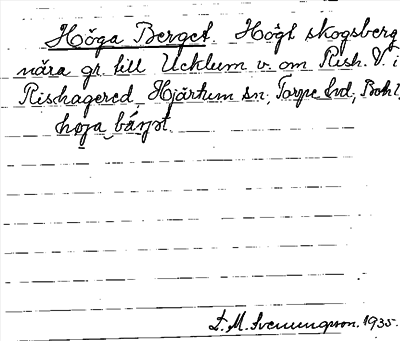 Höga Berget. Högt skogsberg
nära gr. till Ucklum v. om Rish. V. i
Rishagered, Hjärtum sn, Torpe hd, Bohl.
høja bärjət
D. M. Svenungsson. 1935.